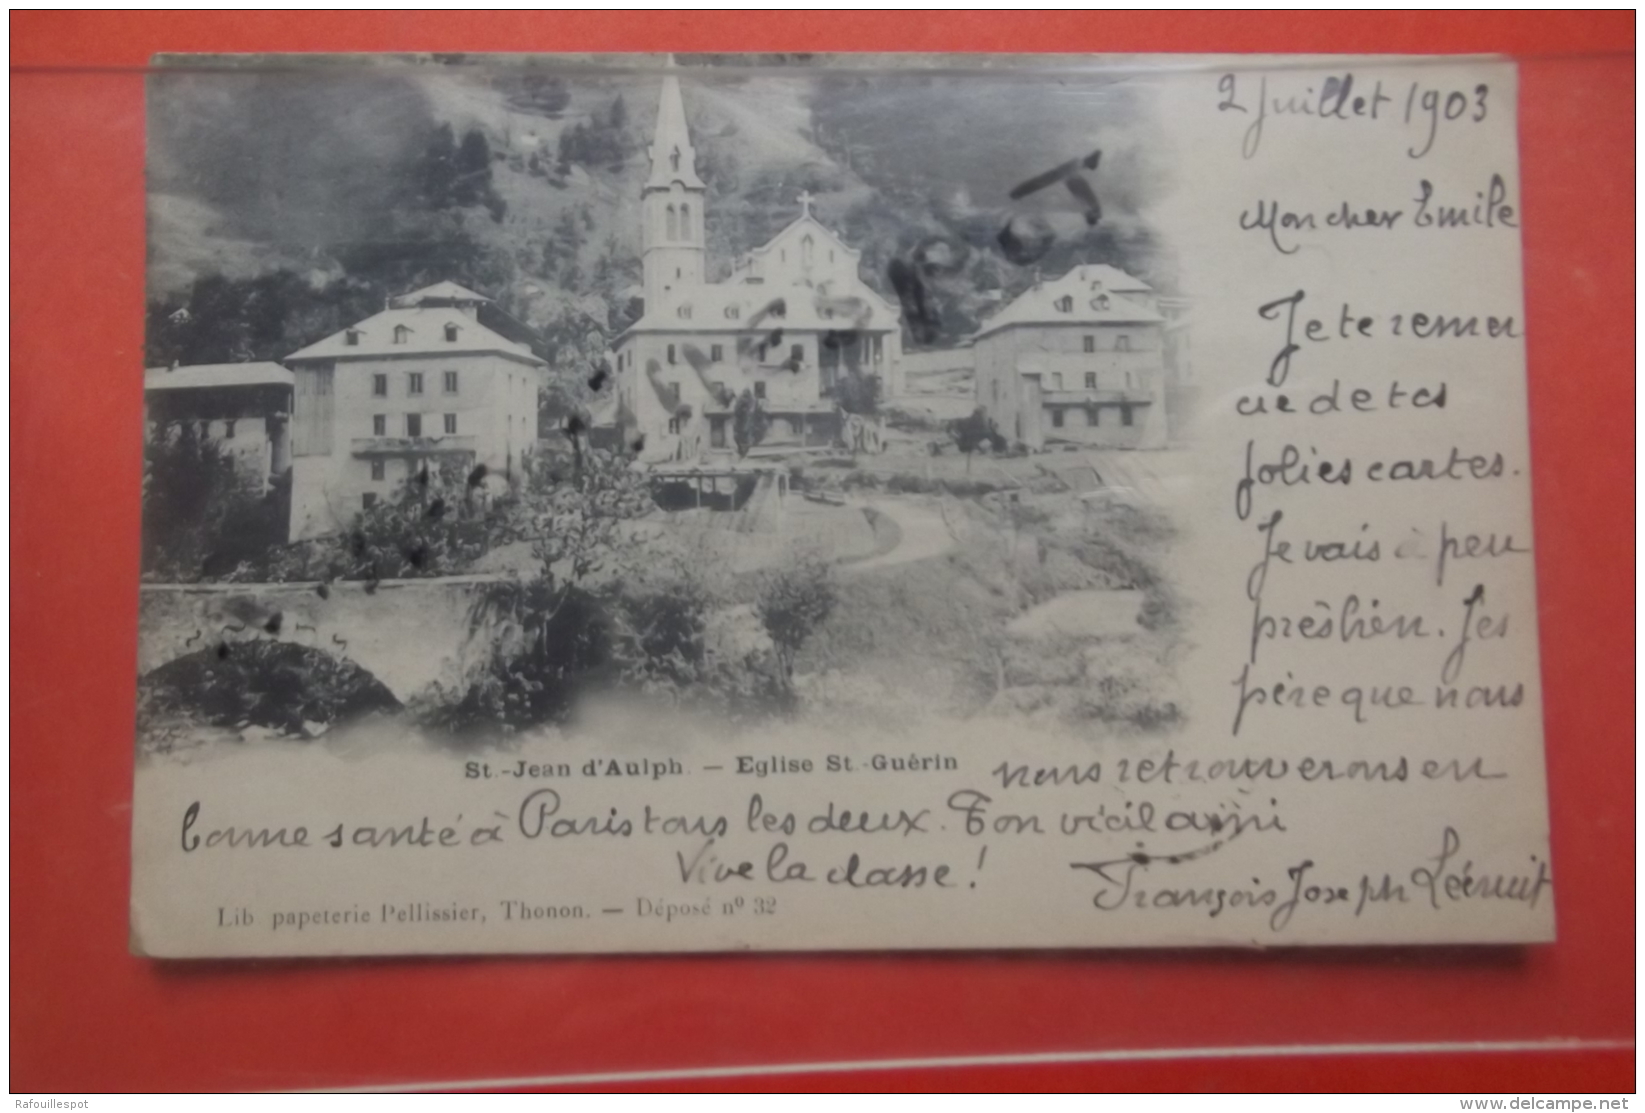 2 Juillet 1903
Mon cher Emile
Je te remer
cie de tes
jolies cartes.
Je vais à peu
près bien. J'es
père que nous
St.-Jean d'Aulph. — Eglise St.-Guérin
nous retrouverons en
bonne santé à Paris tous les deux. Ton vieil ami
Vive la classe!
François Joseph
Lib papeterie Pellissier, Thonon. — Déposé nº 32
Rafouillespot
delcampe.net